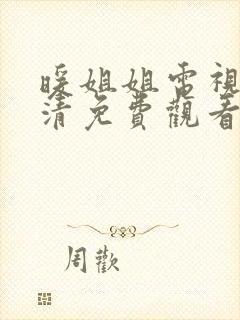 暖姐姐電視
清免費觀看
周歡